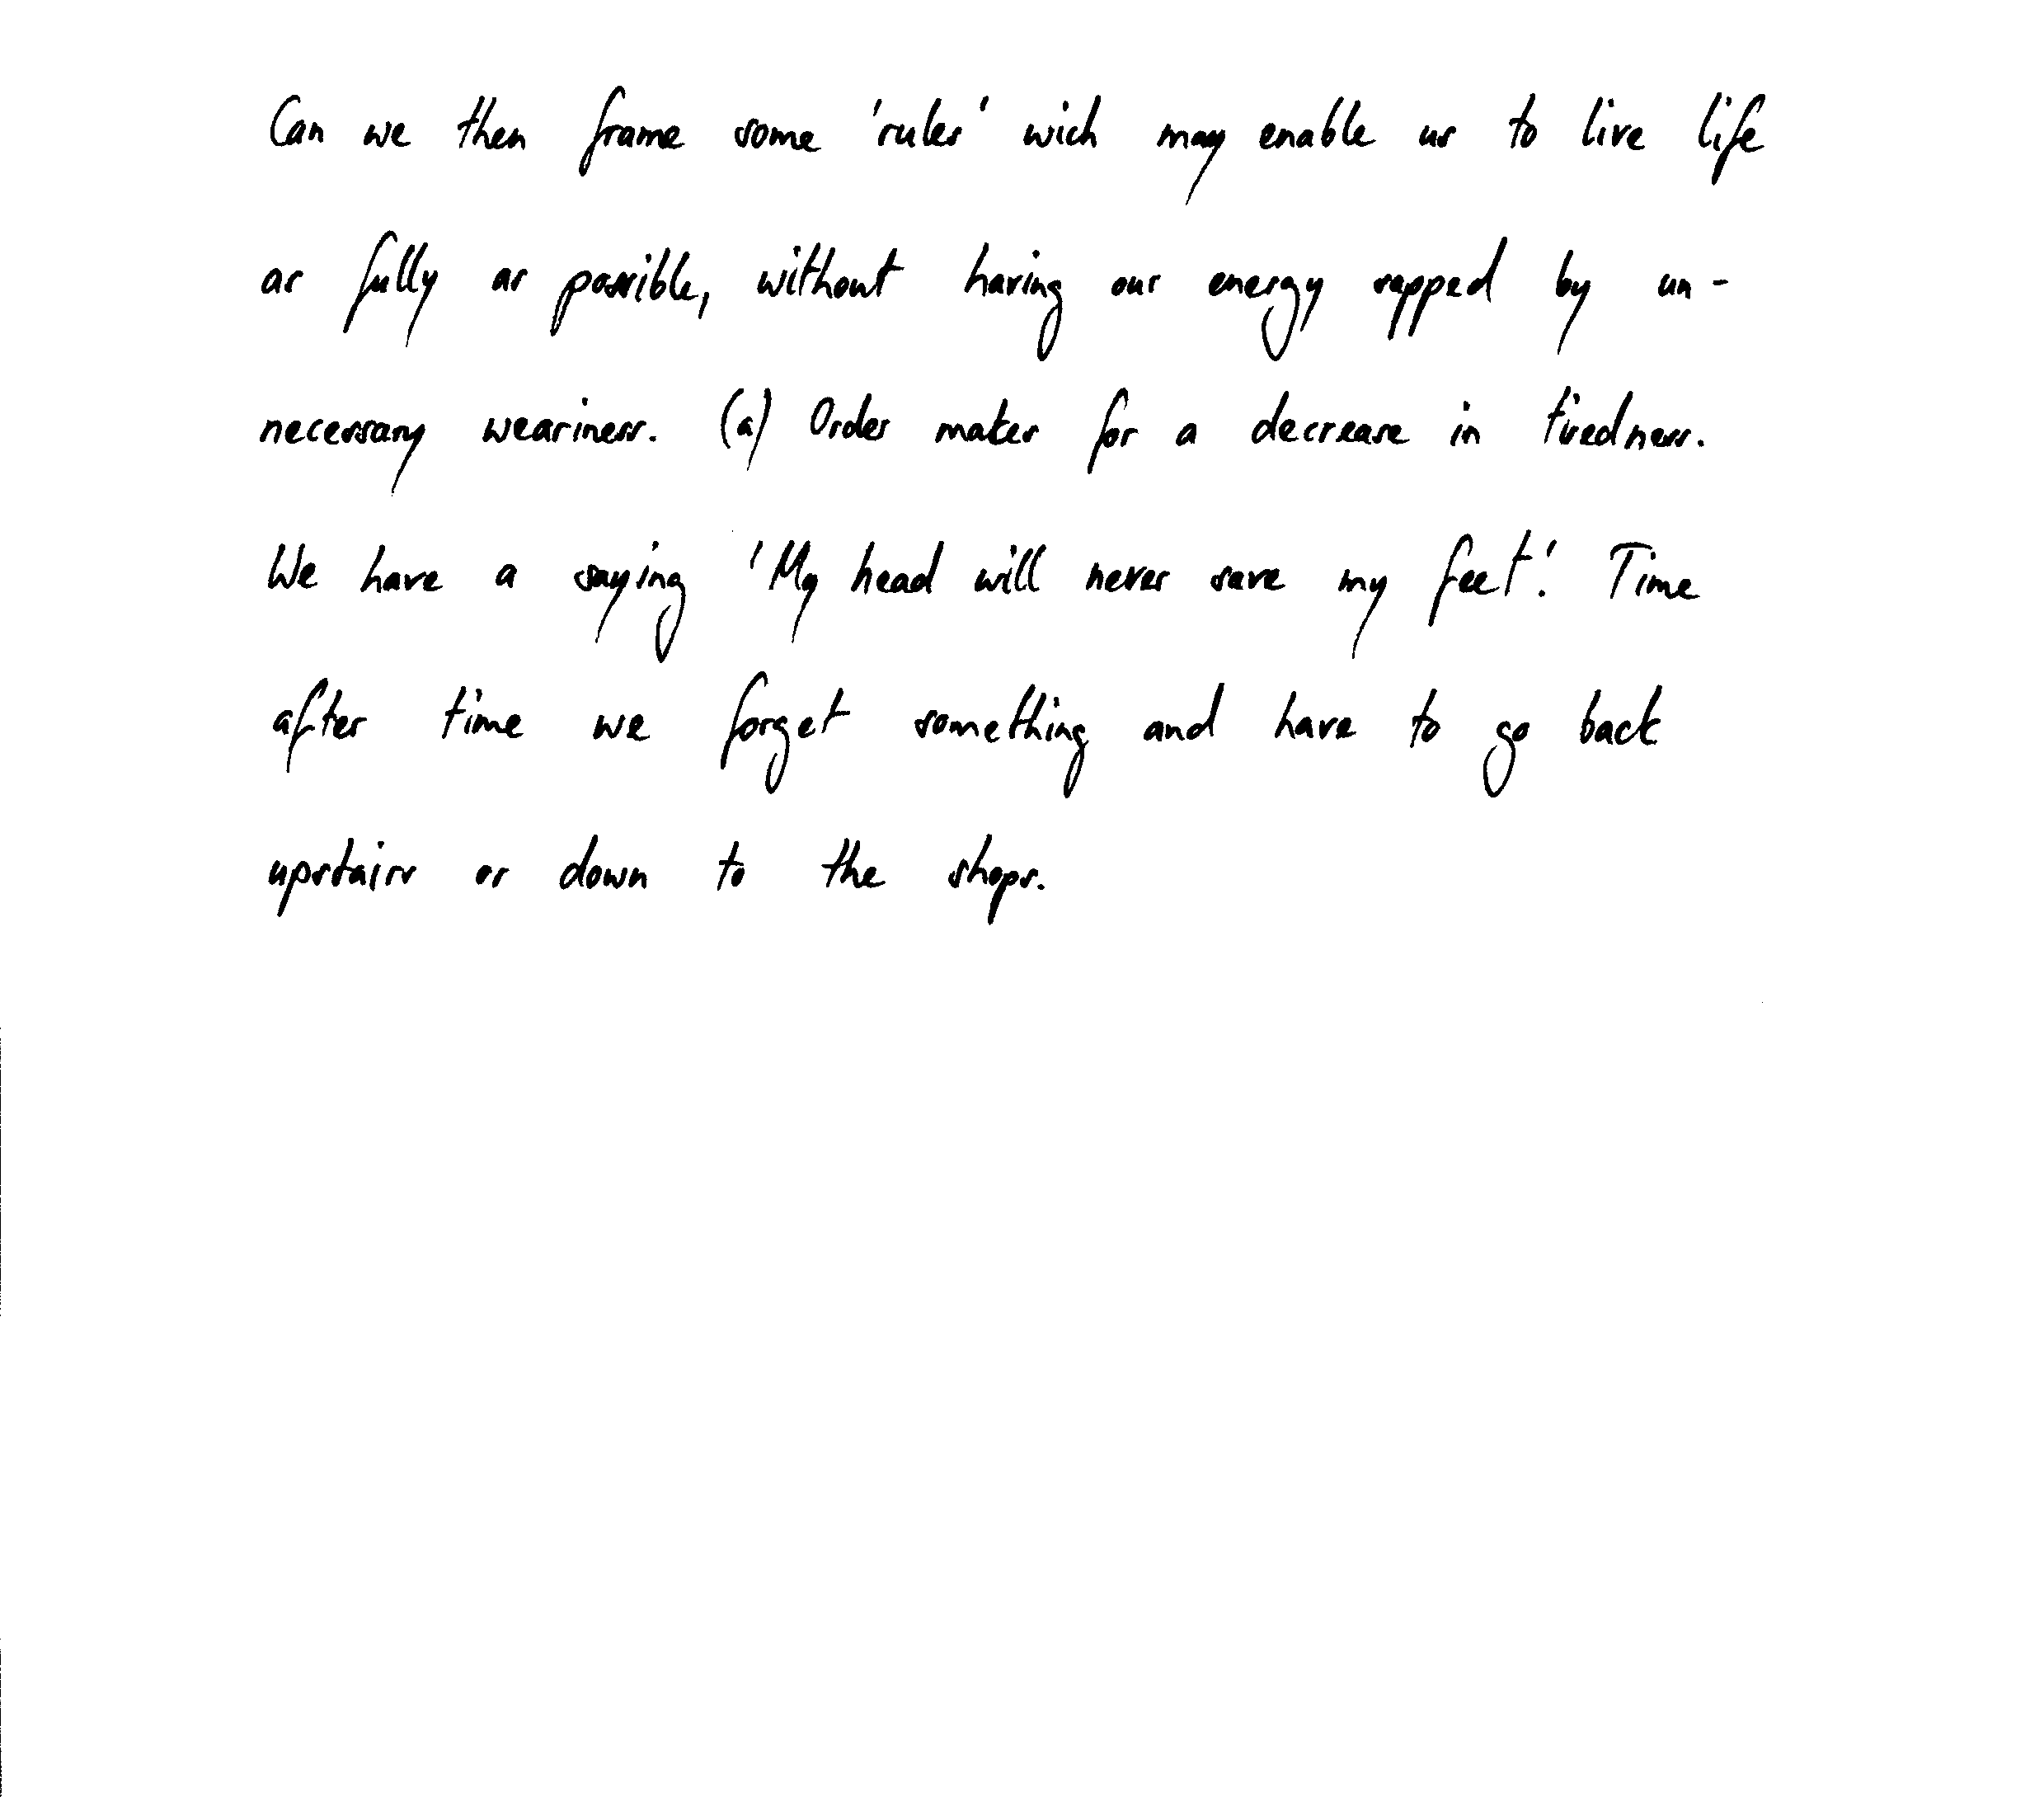 Can we then frame some 'rules' wich may enable us to live life
as fully as possible, without having our energy sapped by un-
necessary weariness. (a) Order makes for a decrease in tiredness.
We have a saying 'My head will never save my feet'. Time
after time we forget something and have to go back
upstairs or down to the shops.